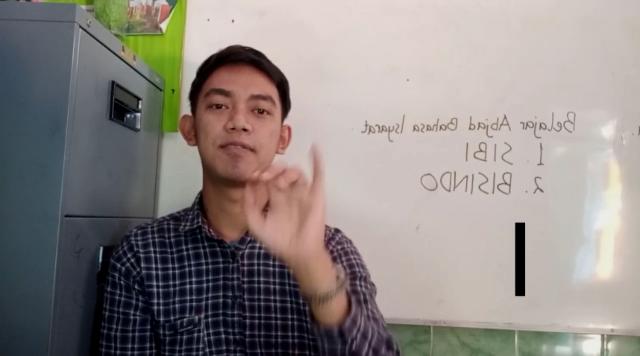 Belajar Abjad Bahasa Isyarat
1. SIBI
2. BISINDO
I